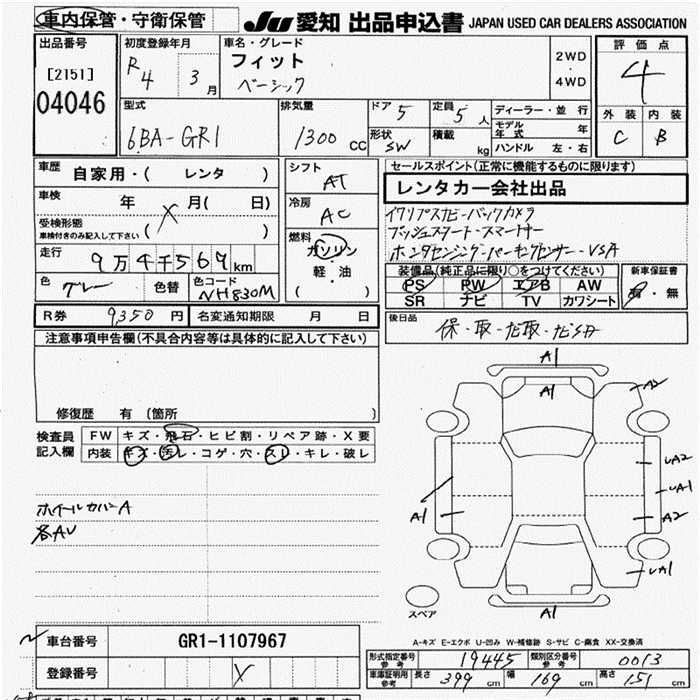 車内保管・守衛保管
JU 愛知 出品申込書 JAPAN USED CAR DEALERS ASSOCIATION
出品番号
[2151]
04046
初度登録年月
R4 3月
車名・グレード
フィット
ベーシック
2WD
・
4WD
評価点
4
外装 内装
C B
型式
6BA-GR1
排気量
1300 CC
ドア 5
定員 5 人
形状 SW
積載 kg
ディーラー・並行
モデル年式 年
ハンドル 左・右
車歴 自家用・( レンタ )
車検 年 月( 日)
受検形態
車検付きのみ記入して下さい ( )
走行 9万4千569km
色 グレー 色替 色コード NH830M
シフト AT
冷房 AC
燃料
ガソリン
・
軽・油
( )
セールスポイント(正常に機能するものに限ります)
レンタカー会社出品
イクリプスナビ・バックカメラ
プッシュスタート・スマートキー
ホンダセンシング・パーキングセンサー・VSA
装備品(純正品に限り○をつけてください)
PS PW エアB AW
SR ナビ TV カワシート
新車保証書
有・無
R券 9350円 名変通知期限 月 日
後日品
保・取・ナビ取・ナビSD
注意事項申告欄(不具合内容等は具体的に記入して下さい)
修復歴 有 〔箇所 〕
検査員記入欄
FW キズ・飛石・ヒビ割・リペア跡・X要
内装 キズ・汚レ・コゲ・穴・スレ・キレ・破レ
ホイールカバーA
各AU
A1
A1
A2
UA2
UA1
A1
A2
UA1
A1
スペア
A-キズ E-エクボ U-凹み W-補修跡 S-サビ C-腐食 XX-交換済
車台番号 GR1-1107967
登録番号
形式指定番号 参考 19445 類別区分番号 参考 0013
車庫証明用 参考 長さ 399 cm 幅 169 cm 高さ 151 cm